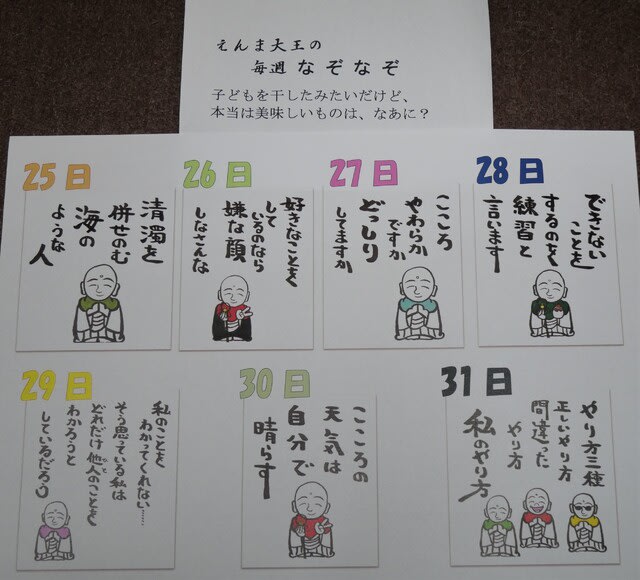 えんま大王の
毎週なぞなぞ
子どもを干したみたいだけど、
本当は美味しいものは、なあに？
25日
清濁を
併せのむ
海の
ような
人
26日
好きなことをく
して
いるのなら
嫌な顔
しなさんな
27日
こころ
やわらか
ですか
どっしり
してますか
28日
できない
ことを
するのをく
練習と
言います
29日
私のことを
わかってくれない……
そう思っている私は
どれだけ他人のことを
わかろうと
しているだろう
30日
こころの
天気は
自分で
晴らす
31日
やり方三種
正しいやり方
間違った
やり方
私のやり方